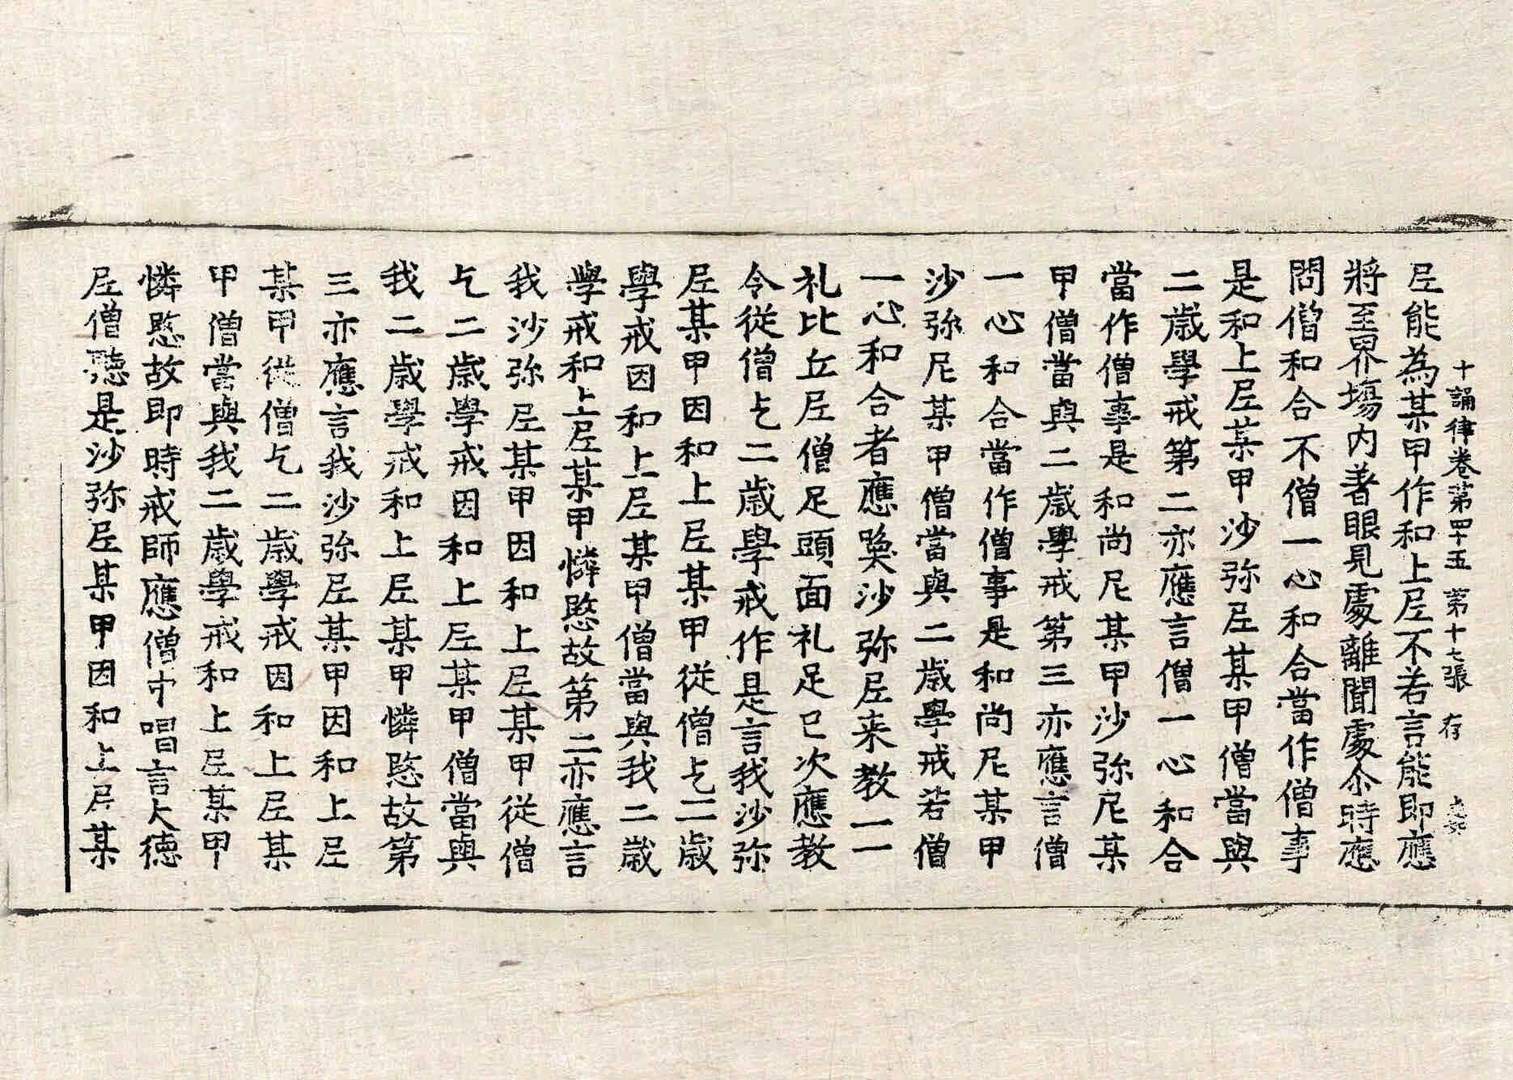 十誦律卷第四十五 第十七張 存
尼能為某甲作和上尼不若言能即應
將至界場內著眼見處離聞處尒時應
問僧和合不僧一心和合當作僧事
是和上尼某甲沙弥尼某甲僧當與
二歲學戒第二亦應言僧一心和合
當作僧事是和尚尼某甲沙弥尼某
甲僧當與二歲學戒第三亦應言僧
一心和合當作僧事是和尚尼某甲
沙弥尼某甲僧當與二歲學戒若僧
一心和合者應喚沙弥尼来教一一
礼比丘尼僧足頭面礼足已次應教
令從僧乞二歲學戒作是言我沙弥
尼某甲因和上尼某甲從僧乞二歲
學戒因和上尼某甲僧當與我二歲
學戒和上尼某甲憐愍故第二亦應言
我沙弥尼某甲因和上尼某甲從僧
乞二歲學戒因和上尼某甲僧當與
我二歲學戒和上尼某甲憐愍故第
三亦應言我沙弥尼某甲因和上尼
某甲從僧乞二歲學戒因和上尼某
甲僧當與我二歲學戒和上尼某甲
憐愍故即時戒師應僧中唱言大德
尼僧聽是沙弥尼某甲因和上尼某